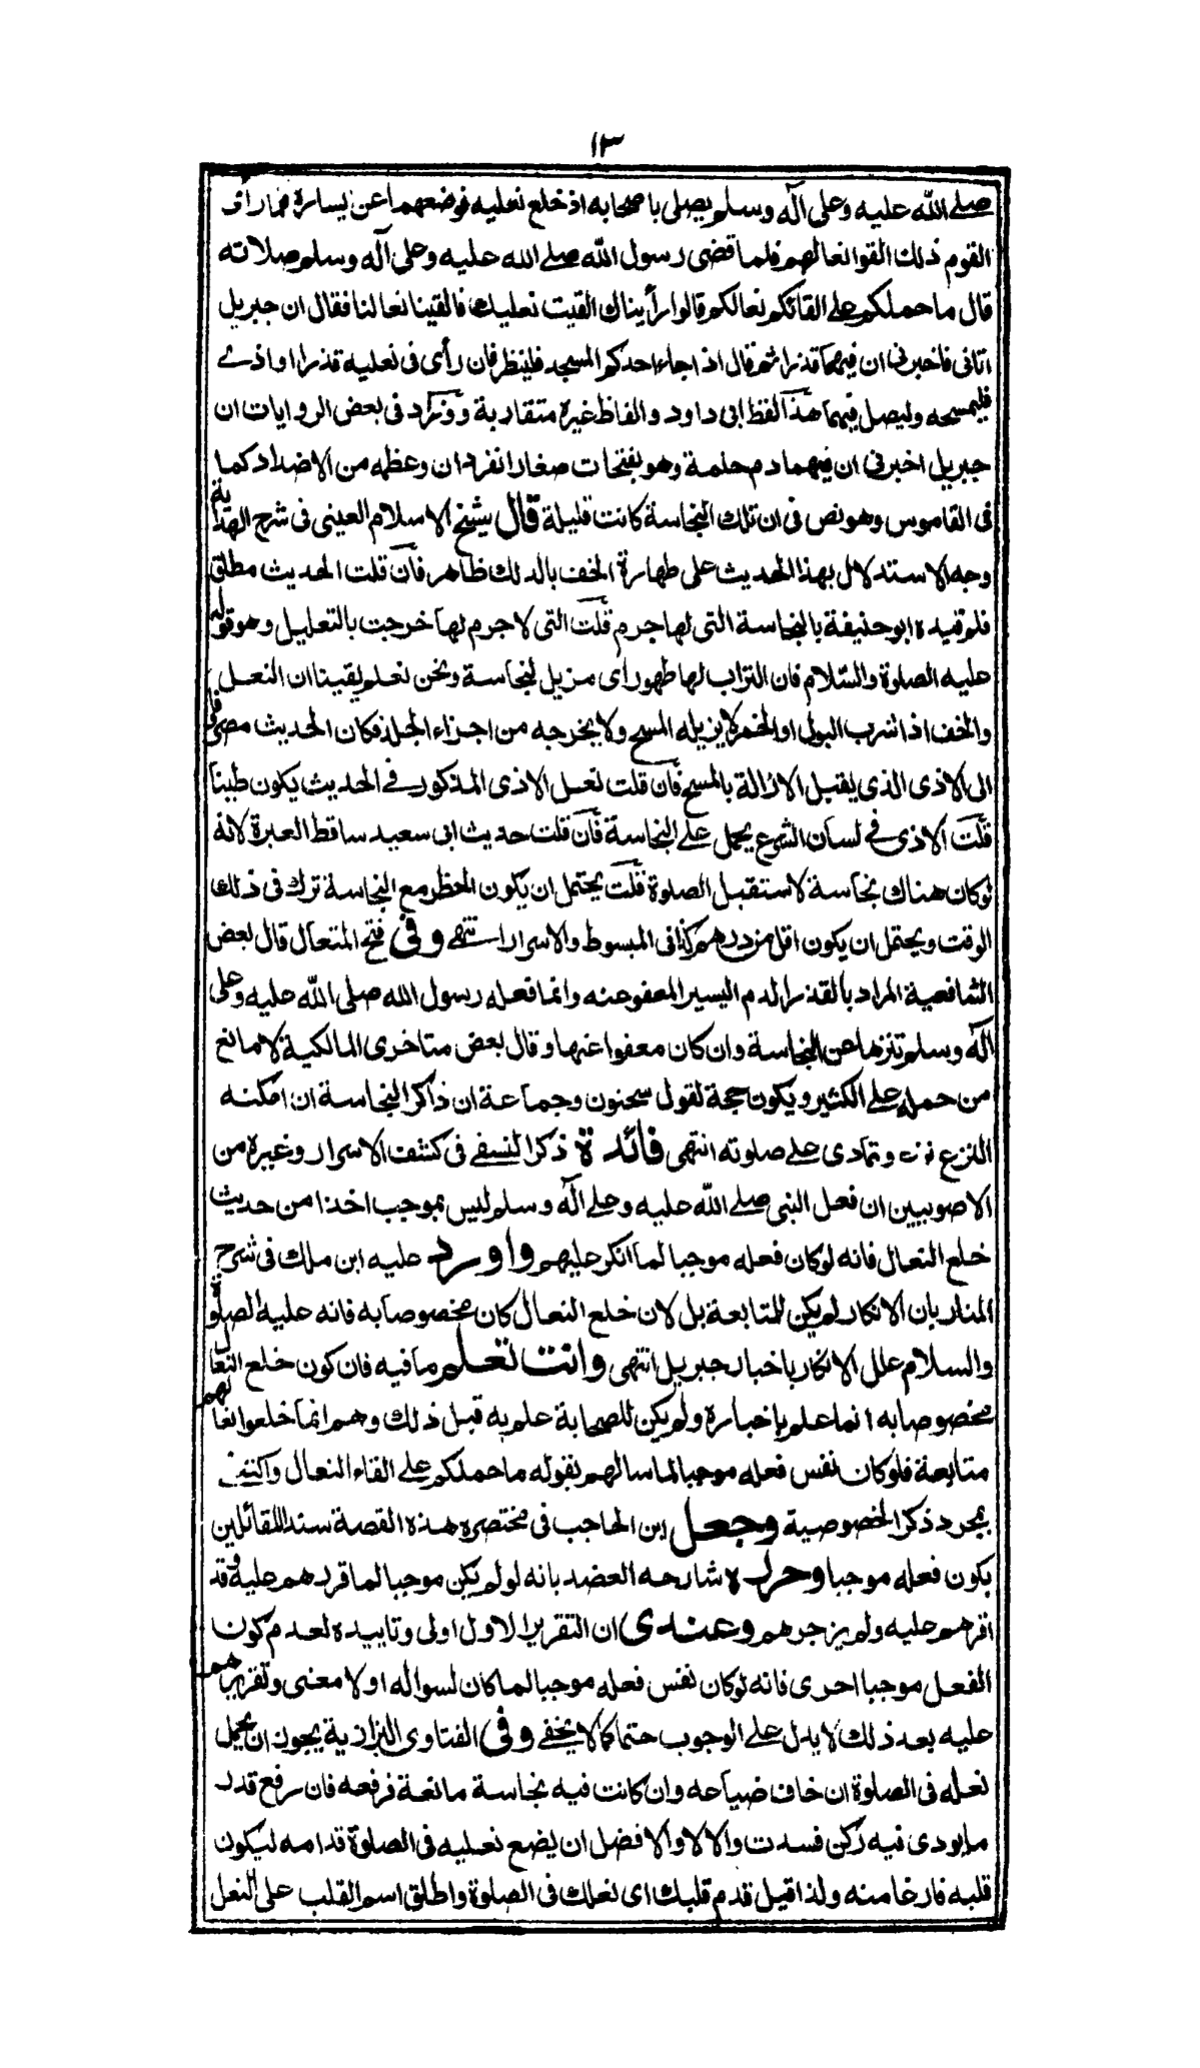 ١٣
صلى الله عليه وعلى آله وسلم يصلى باصحابه اذ خلع نعليه فوضعهما عن يساره فما رأى
القوم ذلك القوا نعالهم فلما قضى رسول الله صلى الله عليه وعلى آله وسلم صلاته
قال ما حملكم على القائكم نعالكم قالوا رأيناك القيت نعليك فالقينا نعالنا فقال ان جبريل
اتانى فاخبرنى ان فيهما قذرا ثم قال اذا جاء احدكم المسجد فلينظر فان رأى فى نعليه قذرا او اذى
فليمسحه وليصل فيهما هذا لفظ ابى داود والفاظ غيره متقاربة وورد فى بعض الروايات ان
جبريل اخبرنى ان فيهما دم حلمة وهو بفتحات صغار القردان وعظمه من الاضداد كما
فى القاموس وهو نص فى ان تلك النجاسة كانت قليلة قال شيخ الاسلام العينى فى شرح الهداية
وجه الاستدلال بهذا الحديث على طهارة الخف بالدلك ظاهر فان قلت الحديث مطلق
فلم قيده ابو حنيفة بالنجاسة التى لها جرم قلت التى لا جرم لها خرجت بالتعليل وهو قوله
عليه الصلوة والسلام فان التراب لها طهور اى مزيل لنجاسة ونحن نعلم يقينا ان النعل
والخف اذا شرب البول او الخمر لا يزيله المسح ولا يخرجه من اجزاء الجلد فكان الحديث مصروفا
الى الاذى الذى يقبل الازالة بالمسح فان قلت لعل الاذى المذكور فى الحديث يكون طينا
قلت الاذى فى لسان الشرع يحمل على النجاسة فان قلت حديث ابى سعيد ساقط العبرة لانه
لو كان هناك نجاسة لاستقبل الصلوة قلت يحتمل ان يكون الحظر مع النجاسة ترك فى ذلك
الوقت ويحتمل ان يكون اقل من درهم كذا فى المبسوط والاسرار انتهى وفى فتح المتعال قال بعض
الشافعية المراد بالقذر الدم اليسير المعفو عنه وانما فعله رسول الله صلى الله عليه وعلى
آله وسلم تنزها عن النجاسة وان كان معفوا عنها وقال بعض متاخرى المالكية لا مانع
من حمله على الكثير ويكون حجة لقول سحنون وجماعة ان ذاكر النجاسة ان امكنه
النزع نزع وتمادى على صلوته انتهى فائدة ذكر النسفى فى كشف الاسرار وغيره من
الاصوليين ان فعل النبى صلى الله عليه وعلى آله وسلم ليس بموجب اخذا من حديث
خلع النعال فانه لو كان فعله موجبا لما انكر عليهم واورد عليه ابن ملك فى شرح
المنار بان الانكار لم يكن للمتابعة بل لان خلع النعال كان مخصوصا به فانه عليه الصلوة
والسلام علل الانكار باخبار جبريل انتهى وانت تعلم ما فيه فان كون خلع النعال
مخصوصا به انما علم باخباره ولم يكن للصحابة علم به قبل ذلك وهم انما خلعوا نعالهم
متابعة فلو كان نفس فعله موجبا لما سالهم بقوله ما حملكم على القاء النعال واكتفى
بمجرد ذكر الخصوصية وجعل ابن الحاجب فى مختصره هذه القصة سندا للقائلين
بكون فعله موجبا وحرره شارحه العضد بانه لو لم يكن موجبا لما قررهم عليه وقد
اقرهم عليه ولم يزجرهم وعندى ان التقرير الاول اولى وتاييده لعدم كون
الفعل موجبا احرى فانه لو كان نفس فعله موجبا لما كان لسواله اولا معنى وتقريرهم
عليه بعد ذلك لا يدل على الوجوب حتما كما لا يخفى وفى الفتاوى البزازية يجوز ان يحمل
نعله فى الصلوة ان خاف ضياعه وان كانت فيه نجاسة مانعة فرفعه فان رفع قدر
ما يودى فيه ركن فسدت والا لا والافضل ان يضع نعليه فى الصلوة قدامه ليكون
قلبه فارغا منه ولذا قيل قدم قلبك اى نعلك فى الصلوة واطلق اسم القلب على النعل